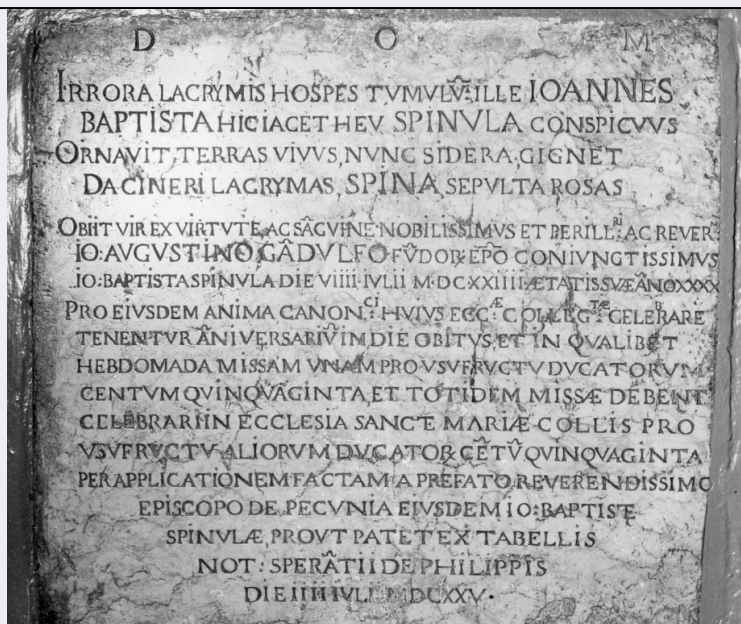 D O M
IRRORA LACRYMIS HOSPES TVMVLV̂: ILLE IOANNES
BAPTISTA HIC IACET HEV SPINVLA CONSPICVVS
ORNAVIT, TERRAS VIVVS, NVNC SIDERA, GIGNET
DA CINERI LACRYMAS, SPINA SEPVLTA ROSAS
OBIIT VIR EX VIRTVTE, AC SÂGVINE NOBILISSIMVS ET PERILL:RI AC REVER:
IO: AVGVSTINO GÂDVLFO FV̂DOR: EP̂O CONIVNGTISSIMVS
IO: BAPTISTA SPINVLA DIE VIIII IVLII M·DCXXIIII ÆTATIS SVÆ ÂNO XXXX
PRO EIVSDEM ANIMA CANON:CI HVIVS ECC:Æ COLLEG:TÆ CELEBRARE
TENENTVR ÂNIVERSARIV̂ IN DIE OBITVS, ET IN QVALIBET
HEBDOMADA MISSAM VNAM PRO VSVFRVCTV DVCATORVM
CENTVM QVINQVAGINTA, ET TOTIDEM MISSÆ DEBENT
CELEBRARI IN ECCLESIA SANCTE MARIÆ COLLIS PRO
VSVFRVCTV ALIORVM DVCATOR: CÊTV̂ QVINQVAGINTA
PER APPLICATIONEM FACTAM A PREFATO, REVERENDISSIMO
EPISCOPO DE, PECVNIA EIVSDEM IO: BAPTISTE
SPINVLÆ, PROVT PATET EX TABELLIS
NOT: SPERÂTII DE PHILIPPIS
DIE IIII IVLII MDCXXV·